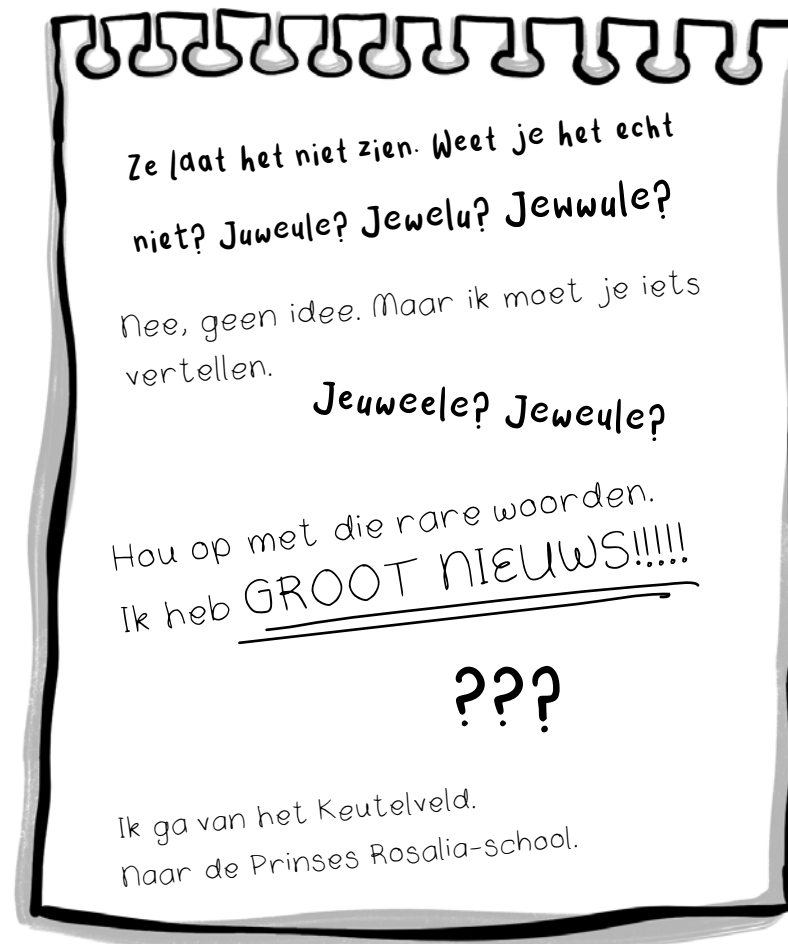 Ze laat het niet zien. Weet je het echt
niet? Juweule? Jewelu? Jewwule?
Nee, geen idee. Maar ik moet je iets
vertellen.
Jeuweele? Jeweule?
Hou op met die rare woorden.
Ik heb GROOT NIEUWS!!!!!
???
Ik ga van het Keutelveld.
Naar de Prinses Rosalia-school.